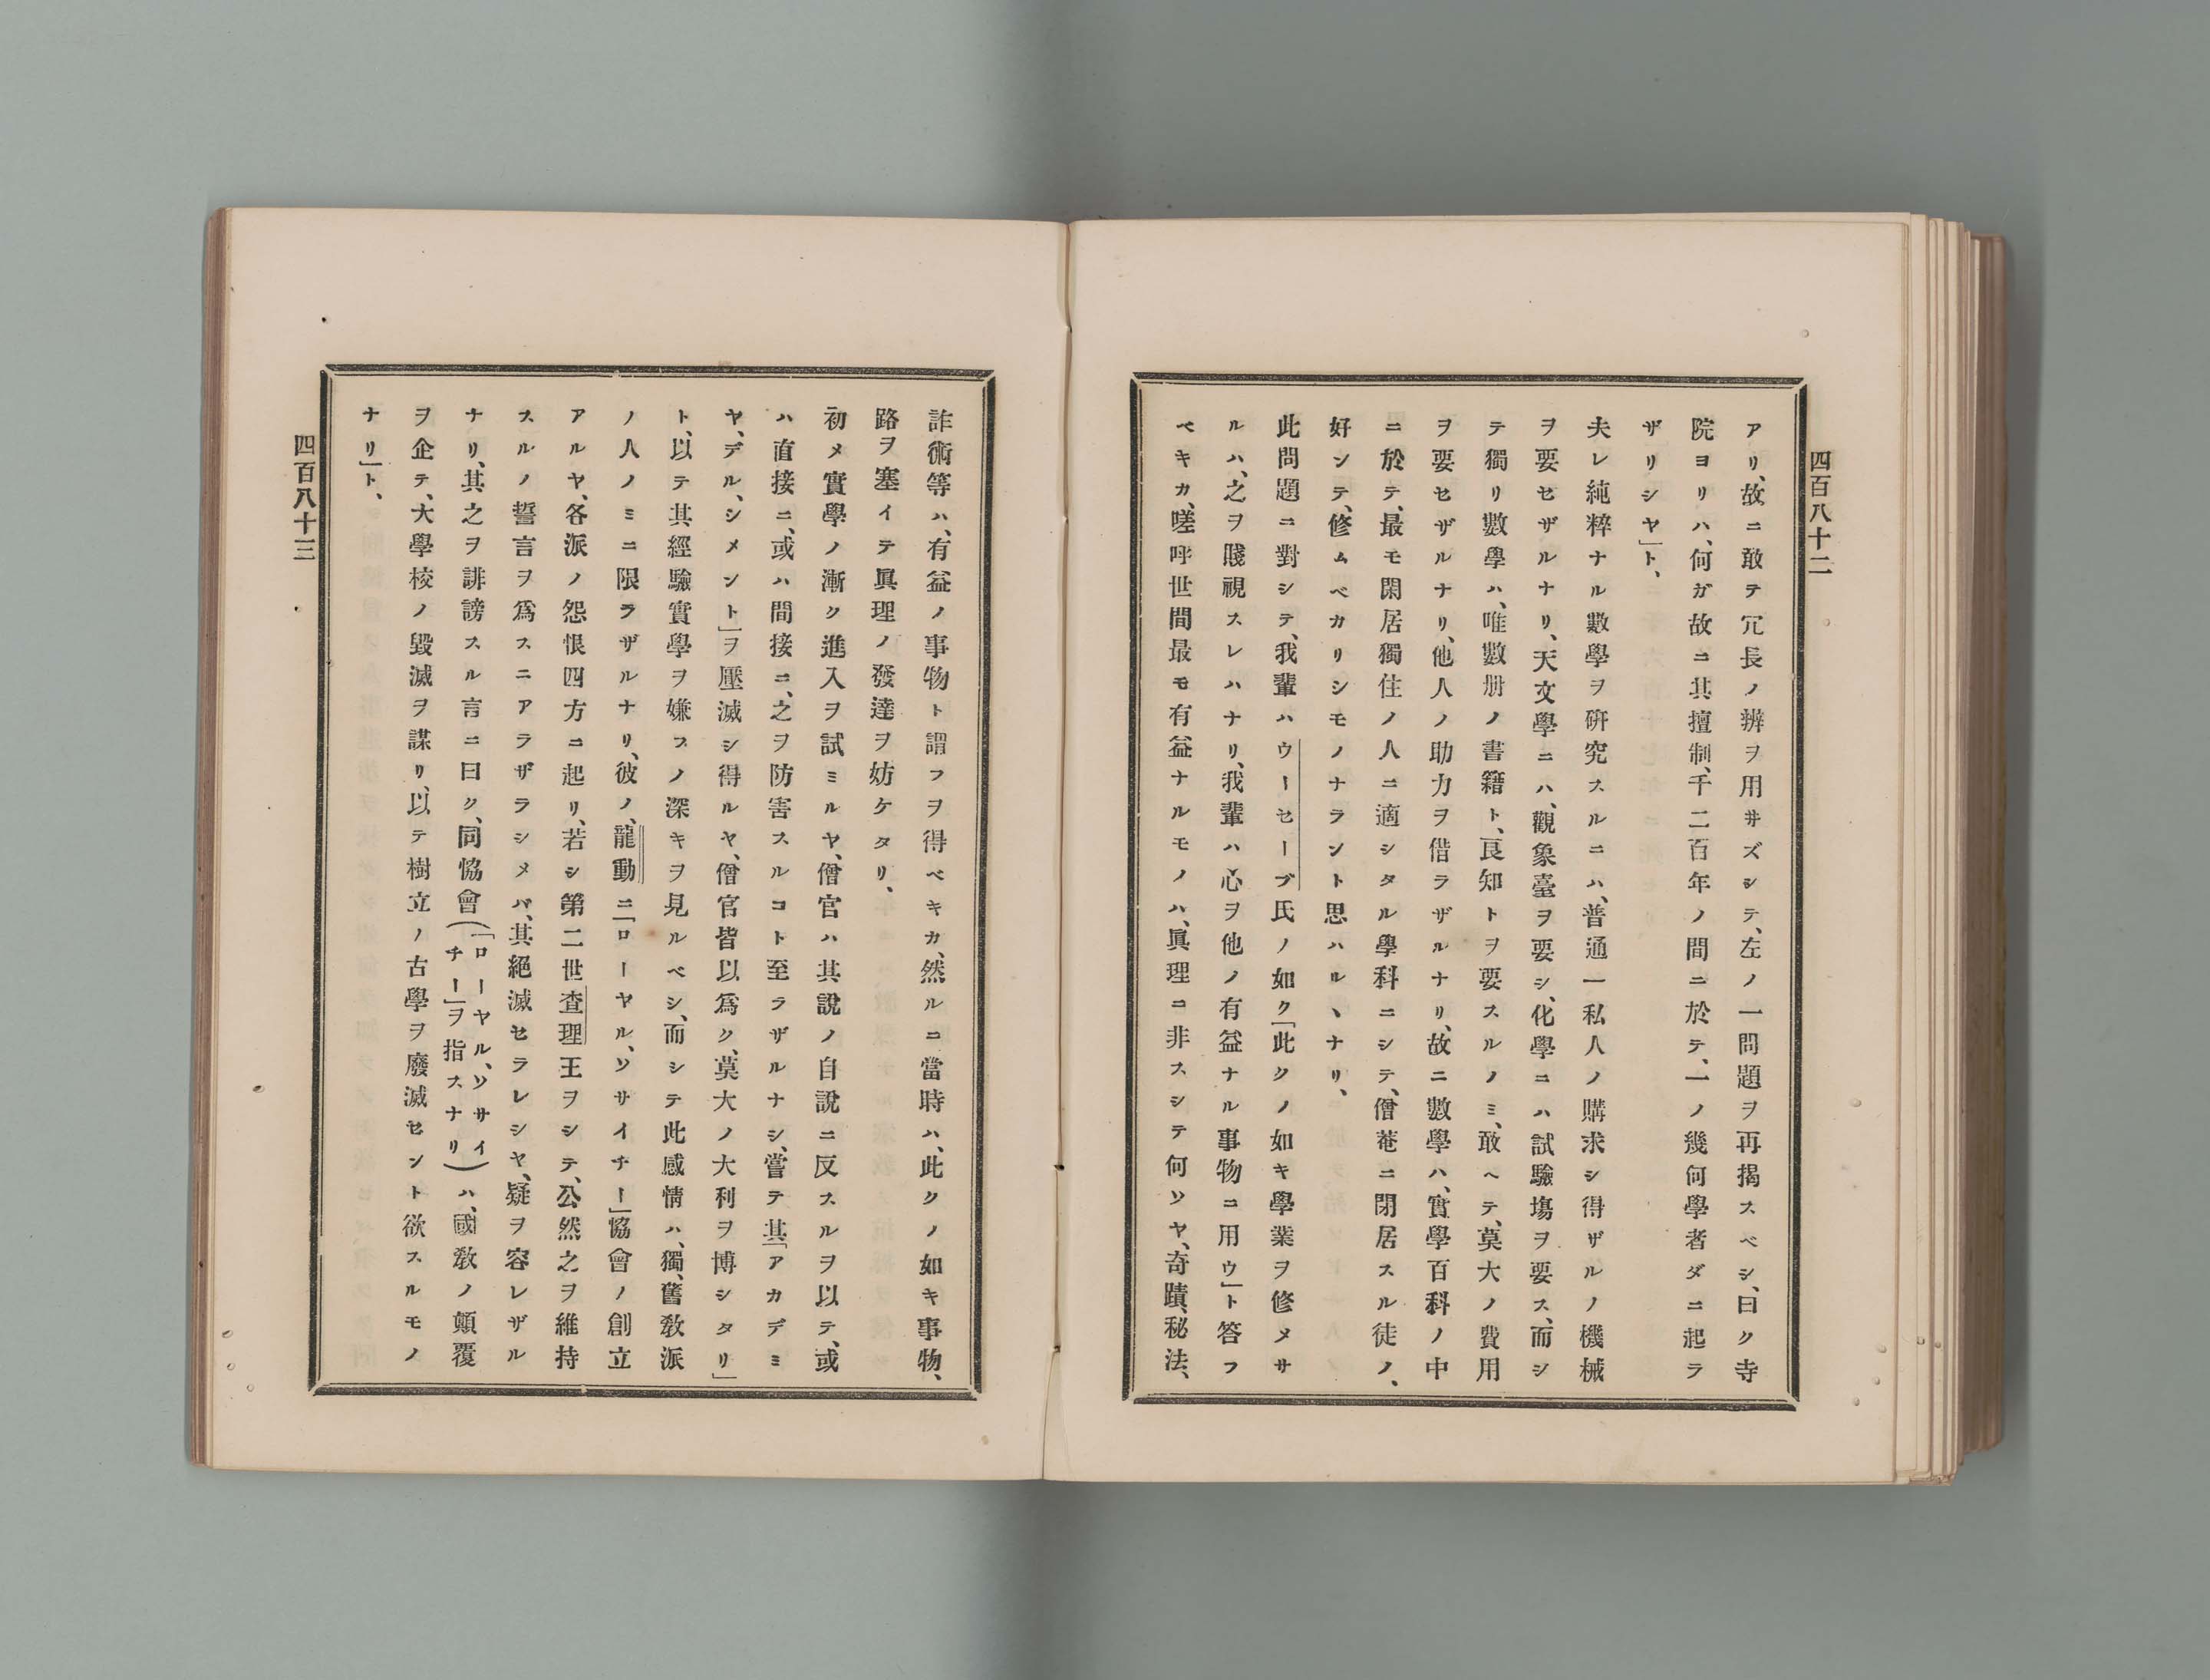 四百八十二
アリ、故ニ敢テ冗長ノ辨ヲ用井ズシテ、左ノ一問題ヲ再揭スベシ、曰ク寺
院ヨリハ、何ガ故ニ其擅制、千二百年ノ間ニ於テ、一ノ幾何學者ダニ起ラ
ザリシヤ」ト、
夫レ純粹ナル數學ヲ硏究スルニハ、普通一私人ノ購求シ得ザルノ機械
ヲ要セザルナリ、天文學ニハ、觀象臺ヲ要シ、化學ニハ試驗塲ヲ要ス、而シ
テ獨リ數學ハ、唯數册ノ書籍ト、良知トヲ要スルノミ、敢ヘテ、莫大ノ費用
ヲ要セザルナリ、他人ノ助力ヲ借ラザルナリ、故ニ數學ハ、實學百科ノ中
ニ於テ、最モ閑居獨住ノ人ニ適シタル學科ニシテ、僧菴ニ閉居スル徒ノ、
好ンテ、修ムベカリシモノナラント思ハルヽナリ、
此問題ニ對シテ、我輩ハウーセーブ氏ノ如ク「此クノ如キ學業ヲ修メサ
ルハ、之ヲ賤視スレハナリ、我輩ハ心ヲ他ノ有益ナル事物ニ用ウ」ト答フ
ベキカ、嗟呼世間最モ有益ナルモノハ、眞理ニ非スシテ何ソヤ、奇蹟、秘法、
詐術等ハ、有益ノ事物ト謂フヲ得ベキカ、然ルニ當時ハ、此クノ如キ事物、
路ヲ塞イテ眞理ノ發達ヲ妨ケタリ、
初メ實學ノ漸ク進入ヲ試ミルヤ、僧官ハ其說ノ自說ニ反スルヲ以テ、或
ハ直接ニ、或ハ間接ニ、之ヲ防害スルコト至ラザルナシ、嘗テ其「アカデミ
ヤ、デル、シメント」ヲ壓滅シ得ルヤ、僧官皆以爲ク、莫大ノ大利ヲ博シタリ」
ト、以テ其經驗實學ヲ嫌フノ深キヲ見ルベシ、而シテ此感情ハ、獨、舊敎派
ノ人ノミニ限ラザルナリ、彼ノ、龍動ニ「ローヤル、ソサイチー」協會ノ創立
アルヤ、各派ノ怨恨四方ニ起リ、若シ第二世査理王ヲシテ、公然之ヲ維持
スルノ誓言ヲ爲スニアラザラシメバ、其絕滅セラレシヤ、疑ヲ容レザル
ナリ、其之ヲ誹謗スル言ニ曰ク、同協會(「ローヤル、ソサイチー」ヲ指スナリ)ハ、國敎ノ顚覆
ヲ企テ、大學校ノ毀滅ヲ謀リ、以テ樹立ノ古學ヲ廢滅セント欲スルモノ
ナリ」ト、
四百八十三